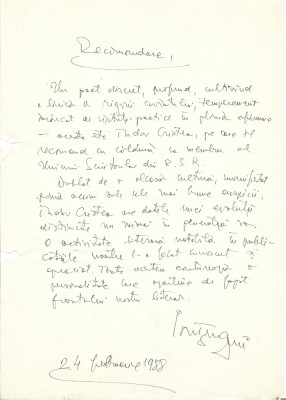 Recomandare,
Un poet discret, profund, cultivând
o lirică a rigorii cuvântului, temperament
marcat de virtuți poetice în plină afirmare
— acesta este Tudor Cristea, pe care îl
recomand cu căldură ca membru al
Uniunii Scriitorilor din R.S.R.
Dublat de o aleasă cultură, manifestat
până acum sub cele mai bune auspicii,
Tudor Cristea are datele unei evoluții
distincte nu numai în generația sa.
O activitate literară notabilă în publi-
cațiile noastre l-a făcut cunoscut și
apreciat. Toate acestea configurează o
personalitate care aparține de fapt
frontului nostru literar.
24 februarie 1988